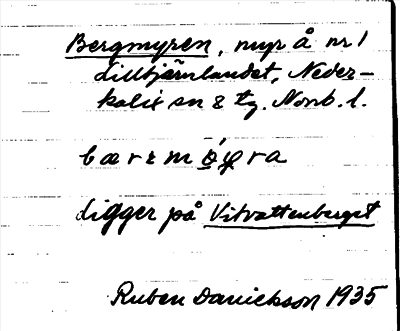 Bergmyren, myr å nr 1
Lillbjärnlandet, Neder-
kalix sn & tg. Norrb. l.
bærɛmǿɟra
ligger på Vitvattenberget
Ruben Danielsson 1935